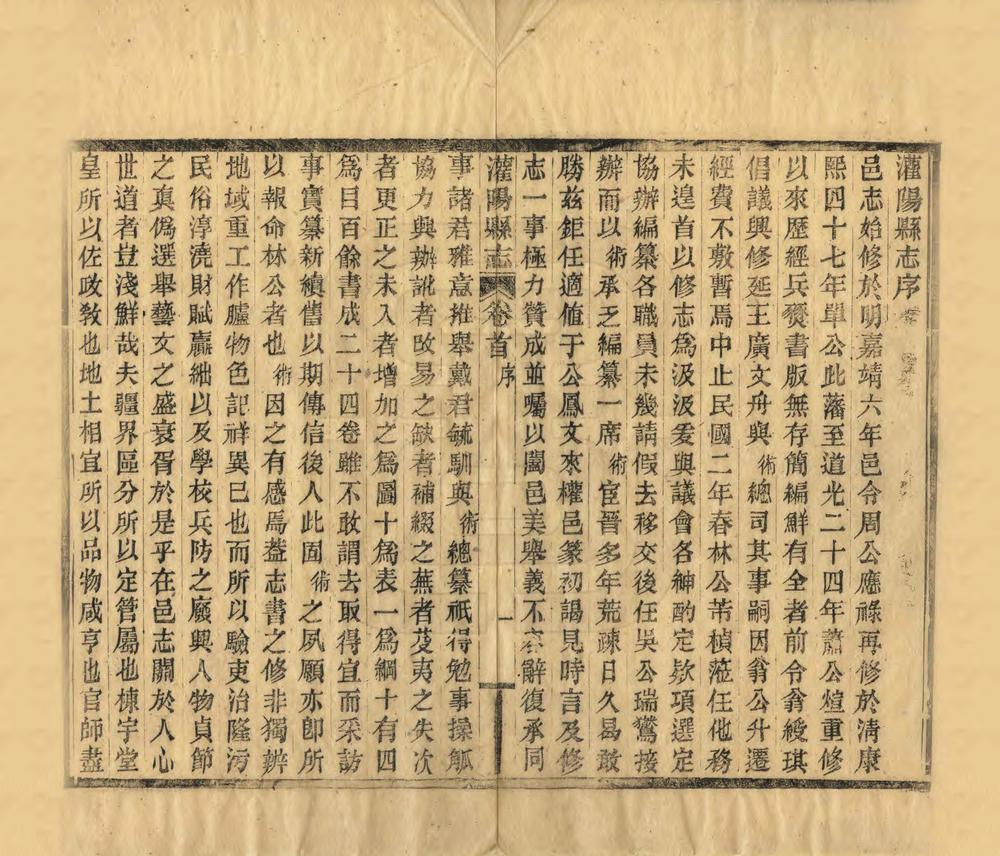 灌陽縣志序
邑志始修於明嘉靖六年邑令周公應祿再修於淸康
熙四十七年單公此藩至道光二十四年蕭公煊重修
以來歷經兵燹書版無存簡編鮮有全者前令翁綬琪
倡議興修延王廣文舟與術總司其事嗣因翁公升遷
經費不敷暫焉中止民國二年春林公芾楨蒞任他務
未遑首以修志爲汲汲爰與議會各紳酌定欵項選定
協辦編纂各職員未幾請假去移交後任吳公瑞鸞接
辦而以術承乏編纂一席術宦晉多年荒疎日久曷敢
勝兹鉅任適値于公鳳文來權邑篆初謁見時言及修
志一事極力贊成並囑以闔邑美舉義不容辭復承同
灌陽縣志 卷首 序 一
事諸君雅意推舉戴君毓馴與術總纂祇得勉事操觚
協力與辦訛者攺易之缺者補綴之蕪者芟夷之失次
者更正之未入者增加之爲圖十爲表一爲綱十有四
爲目百餘書成二十四卷雖不敢謂去取得宜而采訪
事實纂新續舊以期傳信後人此固術之夙願亦卽所
以報命林公者也術因之有感焉葢志書之修非獨辨
地域重工作臚物色記祥異已也而所以驗吏治隆污
民俗淳澆財賦贏絀以及學校兵防之廢興人物貞節
之眞僞選舉藝文之盛衰胥於是乎在邑志關於人心
世道者豈淺鮮哉夫疆界區分所以定管屬也棟宇堂
皇所以佐政敎也地土相宜所以品物咸亨也官師盡